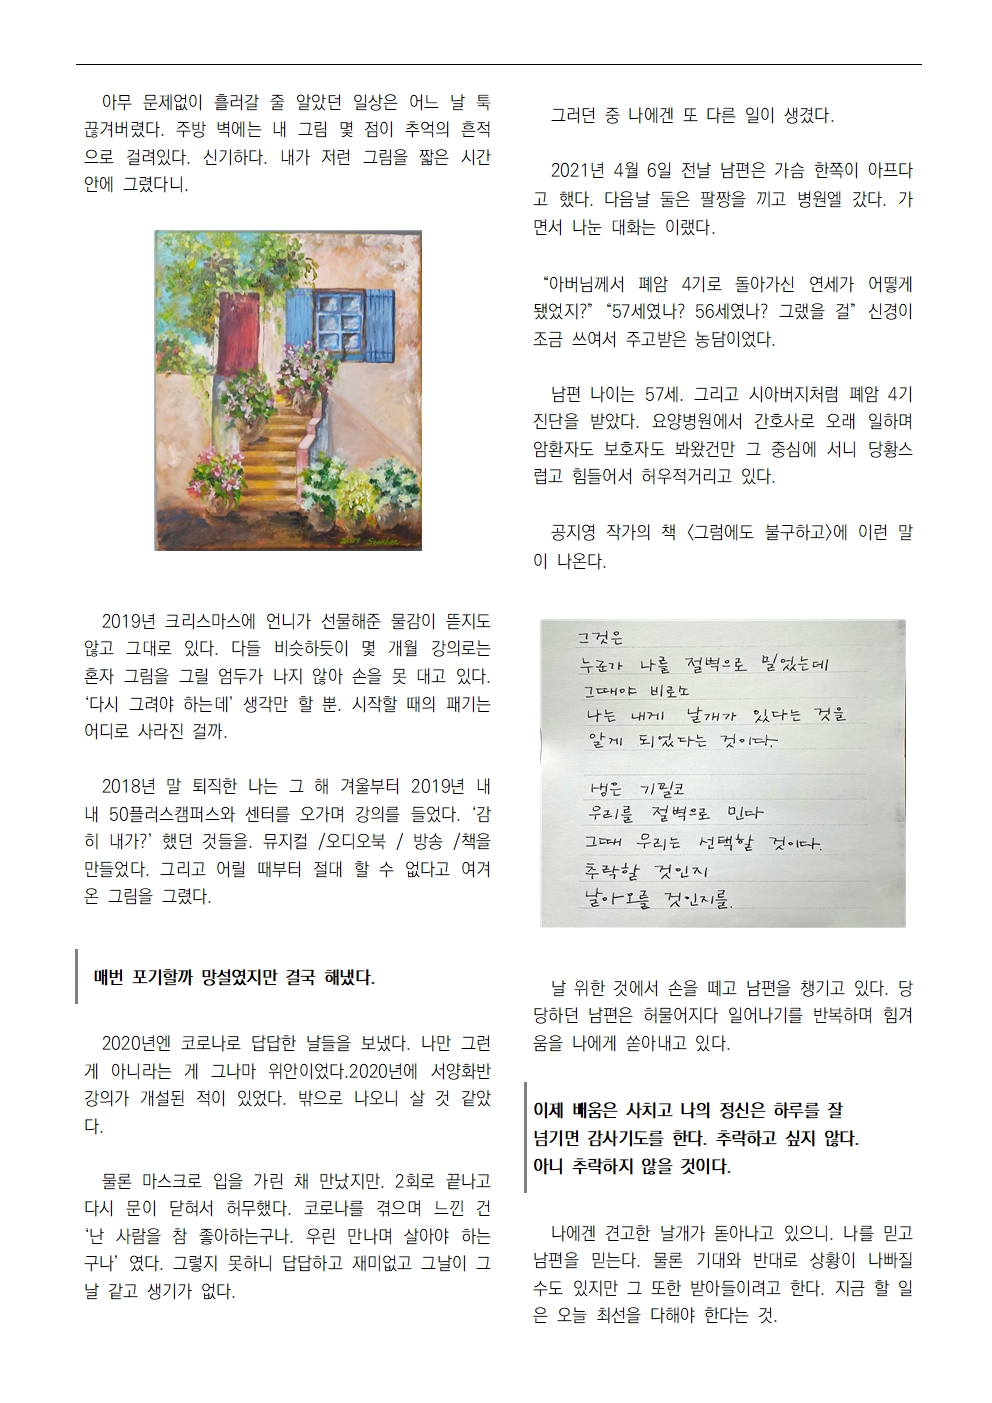 아무 문제없이 흘러갈 줄 알았던 일상은 어느 날 툭
끊겨버렸다. 주방 벽에는 내 그림 몇 점이 추억의 흔적
으로 걸려있다. 신기하다. 내가 저런 그림을 짧은 시간
안에 그렸다니.
2019년 크리스마스에 언니가 선물해준 물감이 뜯지도
않고 그대로 있다. 다들 비슷하듯이 몇 개월 강의로는
혼자 그림을 그릴 엄두가 나지 않아 손을 못 대고 있다.
‘다시 그려야 하는데’ 생각만 할 뿐. 시작할 때의 패기는
어디로 사라진 걸까.
2018년 말 퇴직한 나는 그 해 겨울부터 2019년 내
내 50플러스캠퍼스와 센터를 오가며 강의를 들었다. ‘감
히 내가?’ 했던 것들을. 뮤지컬 /오디오북 / 방송 /책을
만들었다. 그리고 어릴 때부터 절대 할 수 없다고 여겨
온 그림을 그렸다.
매번 포기할까 망설였지만 결국 해냈다.
2020년엔 코로나로 답답한 날들을 보냈다. 나만 그런
게 아니라는 게 그나마 위안이었다.2020년에 서양화반
강의가 개설된 적이 있었다. 밖으로 나오니 살 것 같았
다.
물론 마스크로 입을 가린 채 만났지만. 2회로 끝나고
다시 문이 닫혀서 허무했다. 코로나를 겪으며 느낀 건
‘난 사람을 참 좋아하는구나. 우린 만나며 살아야 하는
구나’ 였다. 그렇지 못하니 답답하고 재미없고 그날이 그
날 같고 생기가 없다.
그러던 중 나에겐 또 다른 일이 생겼다.
2021년 4월 6일 전날 남편은 가슴 한쪽이 아프다
고 했다. 다음날 둘은 팔짱을 끼고 병원엘 갔다. 가
면서 나눈 대화는 이랬다.
“아버님께서 폐암 4기로 돌아가신 연세가 어떻게
됐었지?” “57세였나? 56세였나? 그랬을 걸” 신경이
조금 쓰여서 주고받은 농담이었다.
남편 나이는 57세. 그리고 시아버지처럼 폐암 4기
진단을 받았다. 요양병원에서 간호사로 오래 일하며
암환자도 보호자도 봐왔건만 그 중심에 서니 당황스
럽고 힘들어서 허우적거리고 있다.
공지영 작가의 책 〈그럼에도 불구하고〉에 이런 말
이 나온다.
그것은
누군가 나를 절벽으로 밀었는데
그때야 비로소
나는 내게 날개가 있다는 것을
알게 되었다는 것이다.
생은 기필코
우리를 절벽으로 민다
그때 우리는 선택할 것이다.
추락할 것인지
날아오를 것인지를.
날 위한 것에서 손을 떼고 남편을 챙기고 있다. 당
당하던 남편은 허물어지다 일어나기를 반복하며 힘겨
움을 나에게 쏟아내고 있다.
이제 배움은 사치고 나의 정신은 하루를 잘
넘기면 감사기도를 한다. 추락하고 싶지 않다.
아니 추락하지 않을 것이다.
나에겐 견고한 날개가 돋아나고 있으니. 나를 믿고
남편을 믿는다. 물론 기대와 반대로 상황이 나빠질
수도 있지만 그 또한 받아들이려고 한다. 지금 할 일
은 오늘 최선을 다해야 한다는 것.